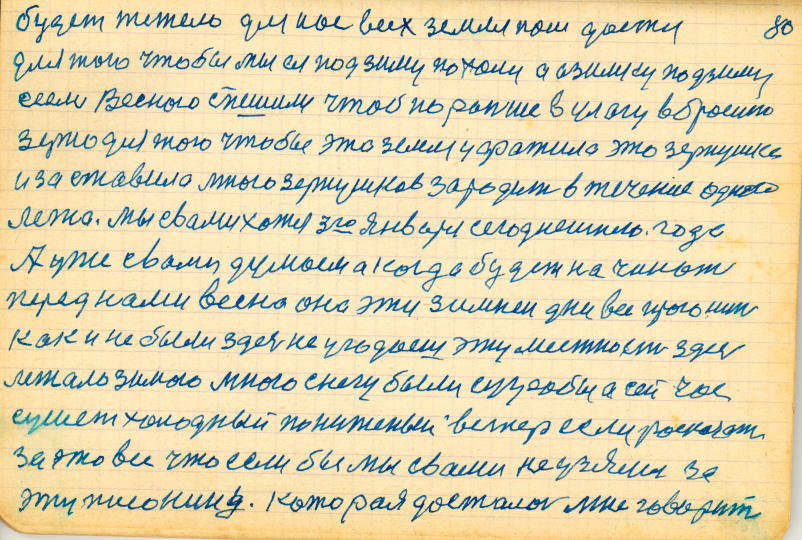 будет тежело для нас всех земля нам дости 80
для того чтобы мы ея под зиму пахали а озимку под зиму
сеели Весною спешили чтоб пораньше в улагу вбросить
зерно для того чтобы эта земля уражила это зернушка
и заставила много зернушков зародит в течение одного
лета. мы свами хотя 3го Января сегоднешнго. года
А уже свами думаем а когда будет начинат
перед нами весна она эти зимнеи дни все прогонит
как и не были здеся не угодаеш эту местност здес
лежало зимою много снегу были сугробы а сей час
сушет холодный пониженый ветер если росказат
за это все что если бы мы свами неузялис за
эту . Которая досталос мне говорит